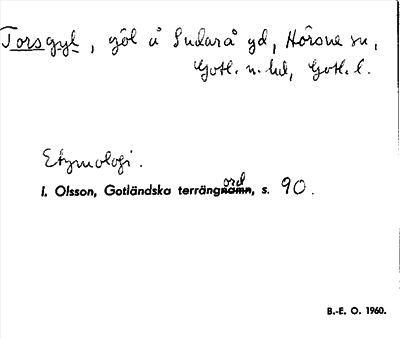 Torsgyl, göl å Sudarå gd, Hörsne sn,
Gotl. n. hd, Gotl. l.
Etymologi.
I. Olsson, Gotländska terrängord, s. 90.
B.-E. O. 1960.